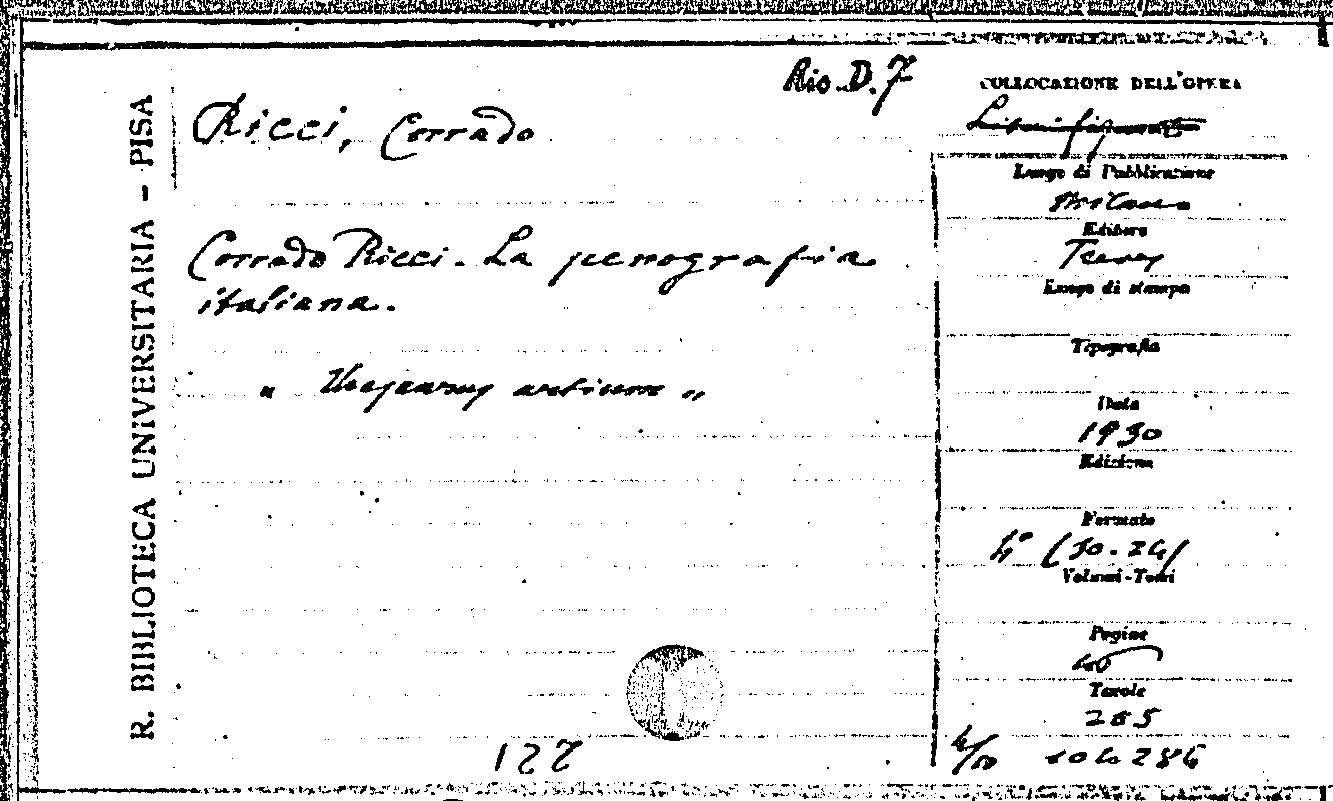 R. BIBLIOTECA UNIVERSITARIA - PISA
Rio. D. 7
Ricci, Corrado
Corrado Ricci. La scenografia
italiana.
artium „
122
COLLOCAZIONE DELL'OPERA
Luogo di Pubblicazione
Milano
Editore
Treves
Luogo di stampa
Tipografia
Data
1930
Edizione
Formato
4° (30.24)
Volumi-Tomi
Pagine
Tavole